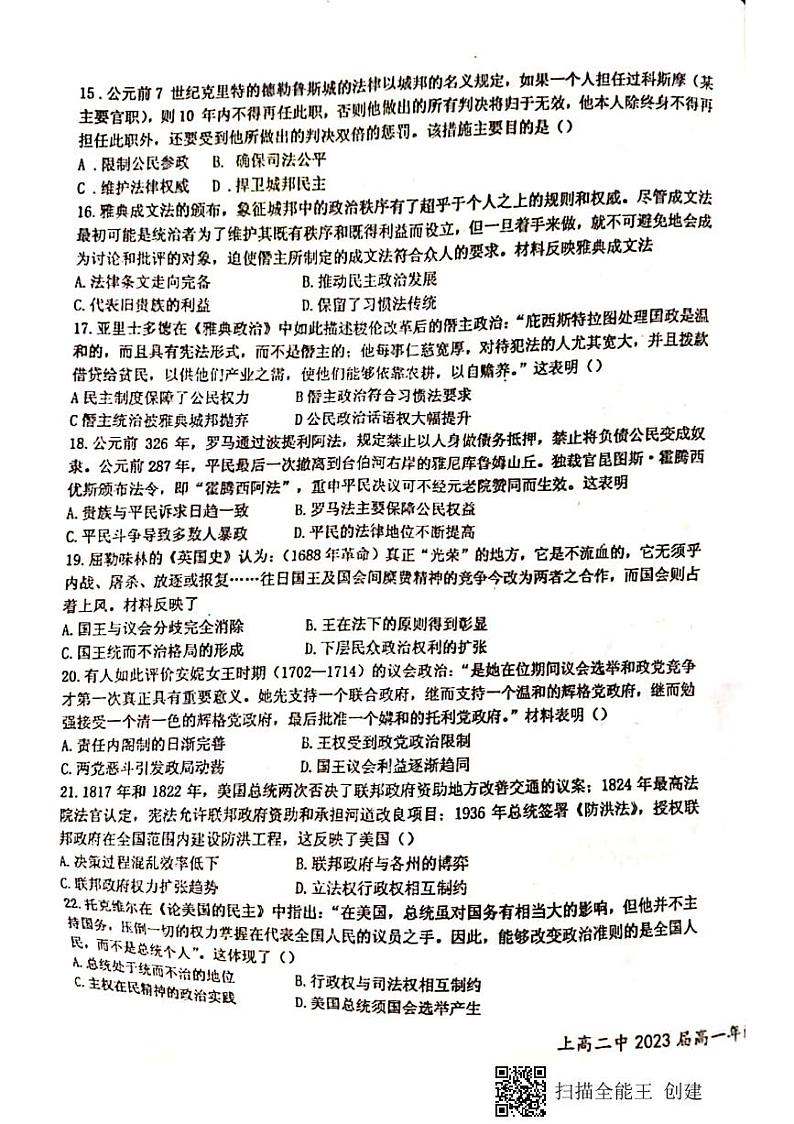 15. 公元前 7 世纪克里特的德勒鲁斯城的法律以城邦的名义规定，如果一个人担任过科斯摩（某
主要官职），则 10 年内不得再任此职，否则他做出的所有判决将归于无效，他本人除终身不得再
担任此职外，还要受到他所做出的判决双倍的惩罚。该措施主要目的是（）
A．限制公民参政 B．确保司法公平
C．维护法律权威 D．捍卫城邦民主
16. 雅典成文法的颁布，象征城邦中的政治秩序有了超乎于个人之上的规则和权威。尽管成文法
最初可能是统治者为了维护其既有秩序和既得利益而设立，但一旦着手来做，就不可避免地会成
为讨论和批评的对象，迫使僭主所制定的成文法符合众人的要求。材料反映雅典成文法
A. 法律条文走向完备 B. 推动民主政治发展
C. 代表旧贵族的利益 D. 保留了习惯法传统
17. 亚里士多德在《雅典政治》中如此描述梭伦改革后的僭主政治：“庇西斯特拉图处理国政是温
和的，而且具有宪法形式，而不是僭主的；他每事仁慈宽厚，对待犯法的人尤其宽大，并且拨款
借贷给贫民，以供他们产业之需，使他们能够依靠农耕，以自赡养。”这表明（）
A 民主制度保障了公民权力 B 僭主政治符合习惯法要求
C 僭主统治被雅典城邦抛弃 D 公民政治话语权大幅提升
18. 公元前 326 年，罗马通过波提利阿法，规定禁止以人身做债务抵押，禁止将负债公民变成奴
隶。公元前 287 年，平民最后一次撤离到台伯河右岸的雅尼库鲁姆山丘。独裁官昆图斯·霍腾西
优斯颁布法令，即“霍腾西阿法”，重申平民决议可不经元老院赞同而生效。这表明
A. 贵族与平民诉求日趋一致 B. 罗马法主要保障公民权益
C. 平民斗争导致多数人暴政 D. 平民的法律地位不断提高
19. 屈勒味林的《英国史》认为：（1688 年革命）真正“光荣”的地方，它是不流血的，它无须乎
内战、屠杀、放逐或报复……往日国王及国会间糜费精神的竞争今改为两者之合作，而国会则占
着上风。材料反映了
A. 国王与议会分歧完全消除 B. 王在法下的原则得到彰显
C. 国王统而不治格局的形成 D. 下层民众政治权利的扩张
20. 有人如此评价安妮女王时期（1702—1714）的议会政治：“是她在位期间议会选举和政党竞争
才第一次真正具有重要意义。她先支持一个联合政府，继而支持一个温和的辉格党政府，继而勉
强接受一个清一色的辉格党政府，最后批准一个媾和的托利党政府。”材料表明（）
A. 责任内阁制的日渐完善 B. 王权受到政党政治限制
C. 两党恶斗引发政局动荡 D. 国王议会利益逐渐趋同
21. 1817 年和 1822 年，美国总统两次否决了联邦政府资助地方改善交通的议案；1824 年最高法
院法官认定，宪法允许联邦政府资助和承担河道改良项目；1936 年总统签署《防洪法》，授权联
邦政府在全国范围内建设防洪工程，这反映了美国（）
A. 决策过程混乱效率低下 B. 联邦政府与各州的博弈
C. 联邦政府权力扩张趋势 D. 立法权行政权相互制约
22. 托克维尔在《论美国的民主》中指出：“在美国，总统虽对国务有相当大的影响，但他并不主
持国务，压倒一切的权力掌握在代表全国人民的议员之手。因此，能够改变政治准则的是全国人
民，而不是总统个人”。这体现了（）
A. 总统处于统而不治的地位 B. 行政权与司法权相互制约
C. 主权在民精神的政治实践 D. 美国总统须国会选举产生
上高二中 2023 届高一年
扫描全能王 创建